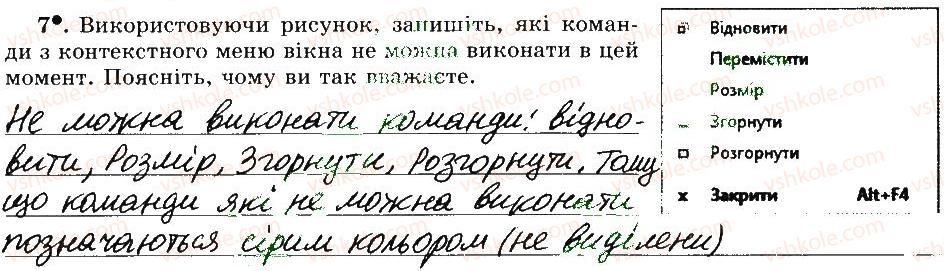 7•. Використовуючи рисунок, запишіть, які коман-
ди з контекстного меню вікна не можна виконати в цей
момент. Поясніть, чому ви так вважаєте.
Не можна виконати команди: відно-
вити, Розмір, Згорнути, Розгорнути. Тому
що команди які не можна виконати
позначаються сірим кольором (не виділени)
Відновити
Перемістити
Розмір
Згорнути
Розгорнути
x Закрити Alt+F4